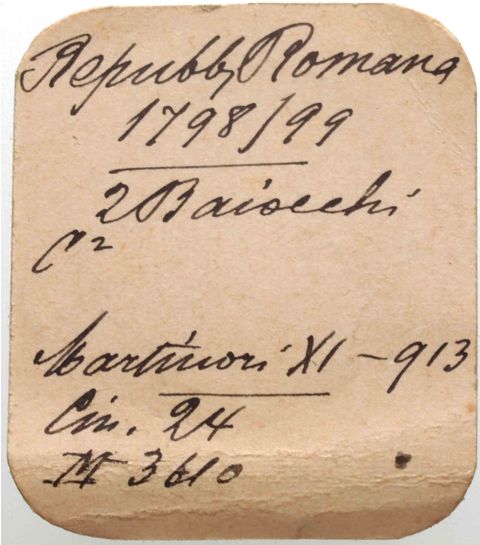 Repubb, Romana
1798/99
2 Baiocchi
C²
Martinori XI - 913
Cin. 24
N 3610